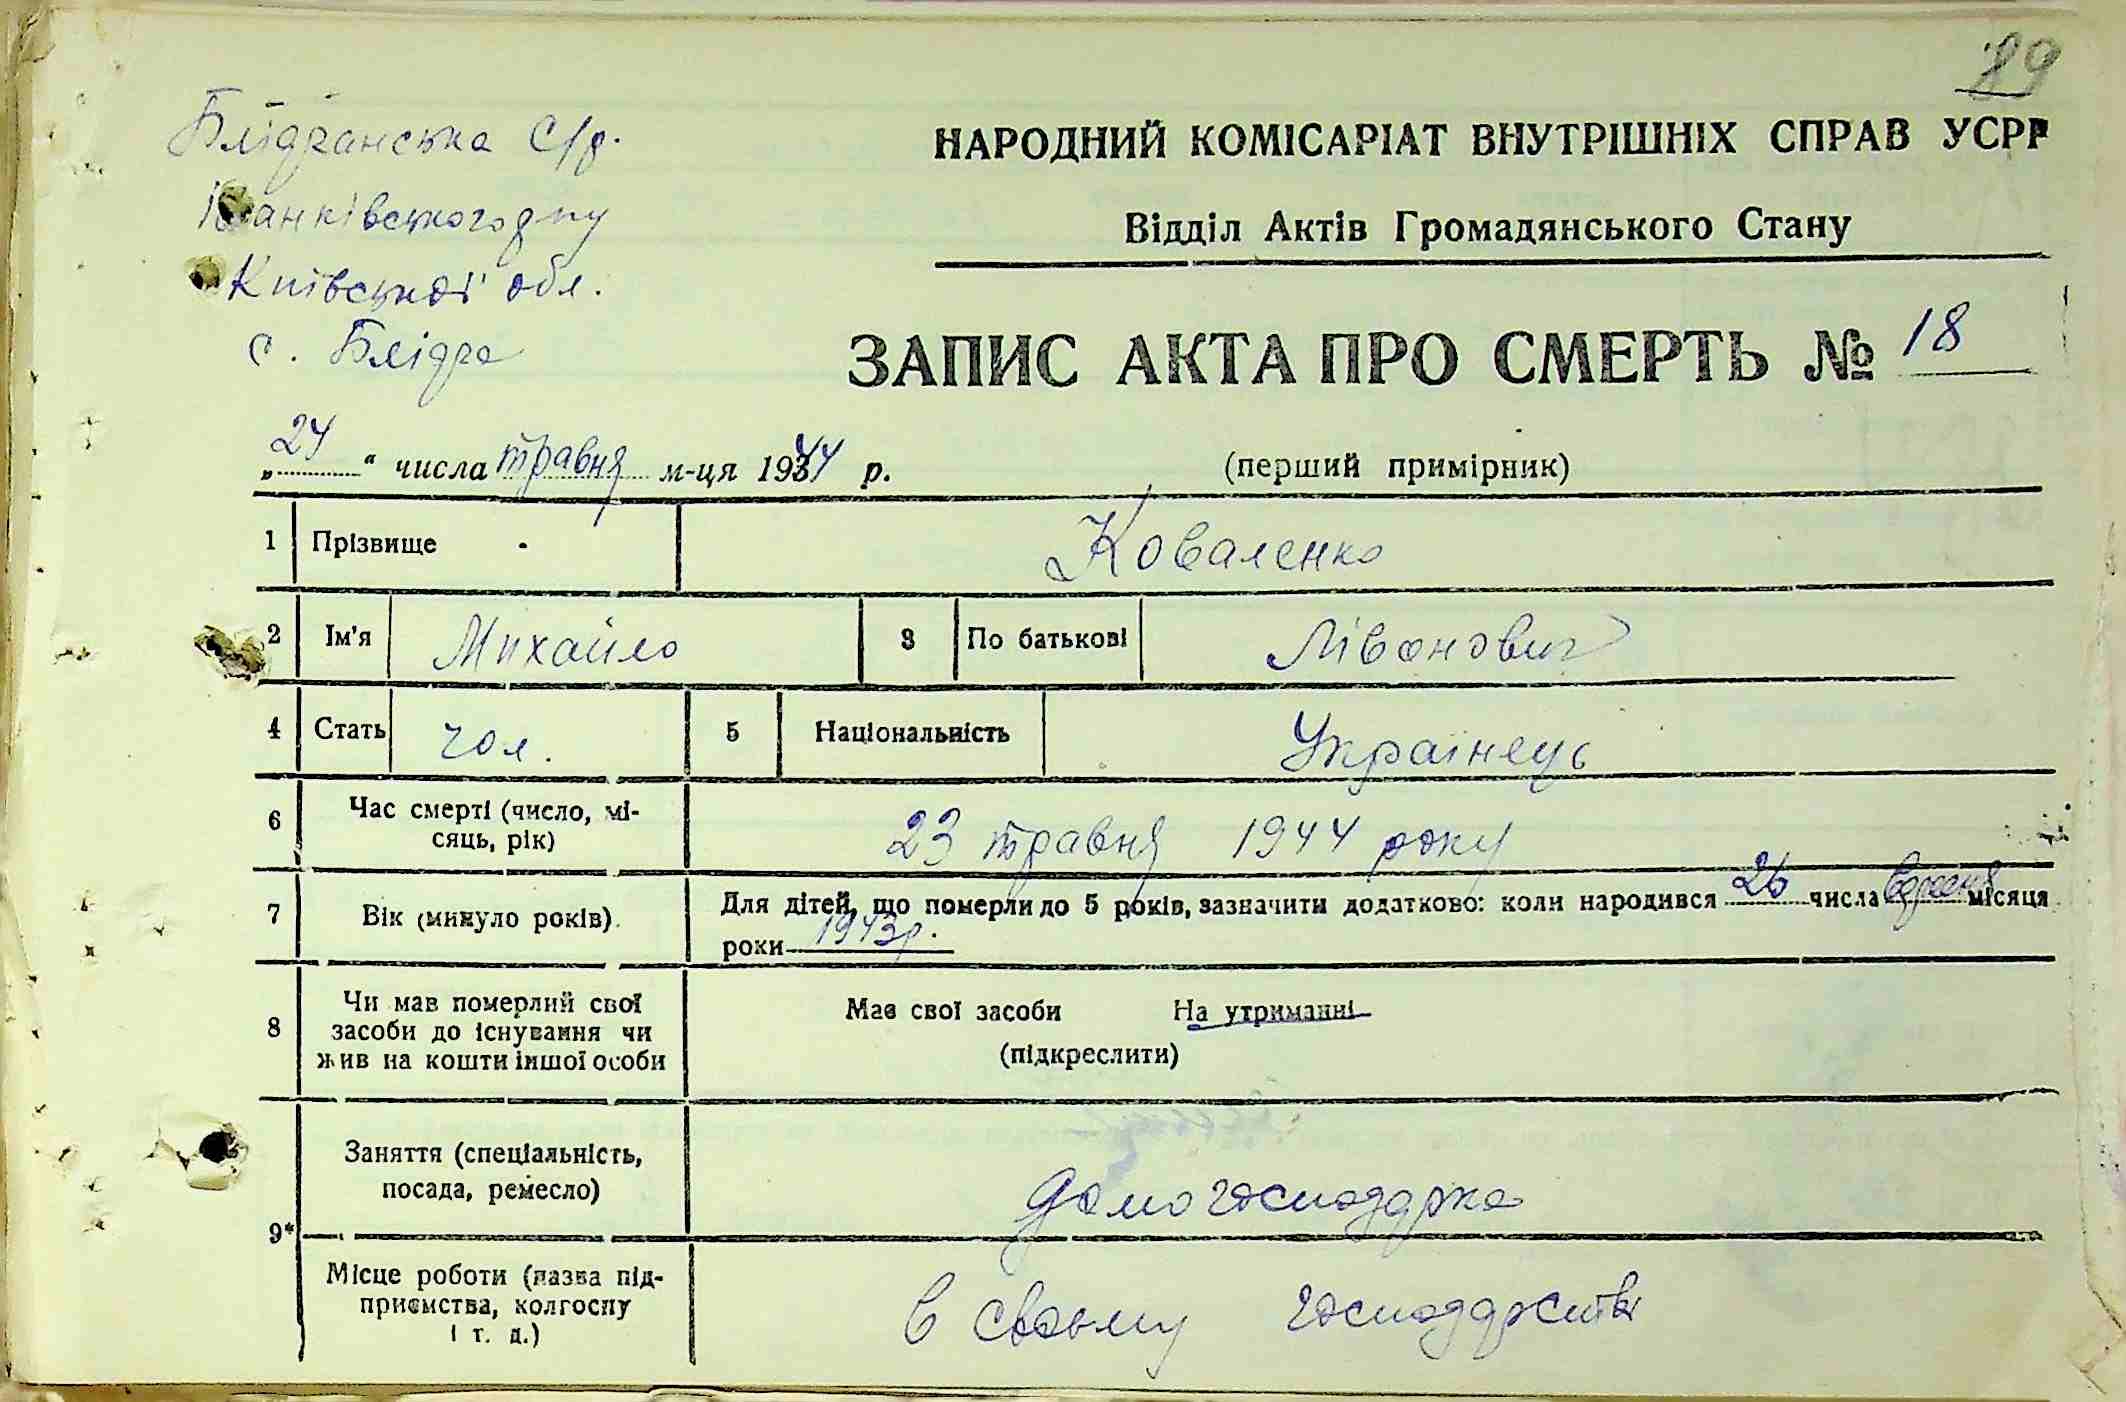 89
Блідчанська с/р.
Іванківського р-ну
Київської обл.
с. Блідча
НАРОДНИЙ КОМІСАРІАТ ВНУТРІШНІХ СПРАВ УСРР
Відділ Актів Громадянського Стану
ЗАПИС АКТА ПРО СМЕРТЬ № 18
„24“ числа травня м-ця 1944 р.
(перший примірник)
1 Прізвище Коваленко
2 Ім'я Михайло 3 По батькові Лівонович
4 Стать чол. 5 Національність Українець
6 Час смерті (число, мі-
сяць, рік)
23 травня 1944 року
7 Вік (минуло років).
Для дітей, що померли до 5 років, зазначити додатково: коли народився 26 числа вересня місяця
роки 1943р.
8 Чи мав померлий свої
засоби до існування чи
жив на кошти іншої особи
Має свої засоби На утриманні
(підкреслити)
9*
Заняття (спеціальність,
посада, ремесло)
домогосподарка
Місце роботи (назва під-
приємства, колгоспу
і т. д.)
в своьму господарстві